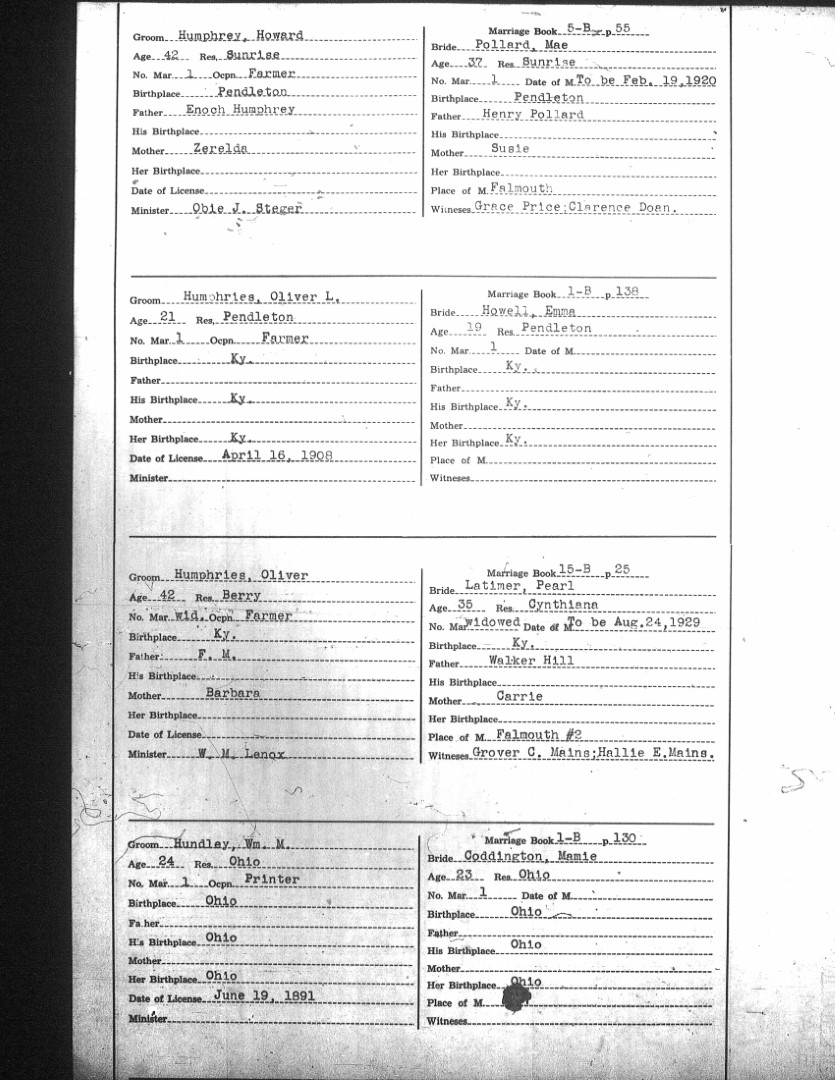 Groom Humphrey, Howard
Age 42 Res. Sunrise
No. Mar 1 Ocpn. Farmer
Birthplace Pendleton
Father Enoch Humphrey
His Birthplace
Mother Zerelda
Her Birthplace
Date of License
Minister Obie J. Steger
Marriage Book 5-B p 55
Bride Pollard, Mae
Age 37 Res. Sunrise
No. Mar 1 Date of M To be Feb. 19,1920
Birthplace Pendleton
Father Henry Pollard
His Birthplace
Mother Susie
Her Birthplace
Place of M. Falmouth
Witneses Grace Price;Clarence Doan.
Groom Humphries, Oliver L.
Age 21 Res. Pendleton
No. Mar 1 Ocpn. Farmer
Birthplace Ky.
Father
His Birthplace Ky.
Mother
Her Birthplace Ky.
Date of License April 16, 1908
Minister
Marriage Book 1-B p 138
Bride Howell, Emma
Age 19 Res. Pendleton
No. Mar 1 Date of M
Birthplace Ky.
Father
His Birthplace Ky.
Mother
Her Birthplace Ky.
Place of M.
Witneses
Groom Humphries, Oliver
Age 42 Res. Berry
No. Mar wid. Ocpn. Farmer
Birthplace Ky.
Father F. M.
His Birthplace
Mother Barbara
Her Birthplace
Date of License
Minister W. M. Lenox
Marriage Book 15-B p 25
Bride Latimer, Pearl
Age 35 Res. Cynthiana
No. Mar widowed Date of M To be Aug.24,1929
Birthplace Ky.
Father Walker Hill
His Birthplace
Mother Carrie
Her Birthplace
Place of M. Falmouth #2
Witneses Grover C. Mains;Hallie E.Mains.
Groom Hundley, Wm. M.
Age 24 Res. Ohio
No. Mar. 1 Ocpn. Printer
Birthplace Ohio
Father
His Birthplace Ohio
Mother
Her Birthplace Ohio
Date of License June 19, 1891
Minister
Marriage Book 1-B p 130
Bride Coddington, Mamie
Age 23 Res. Ohio
No. Mar 1 Date of M
Birthplace Ohio
Father
His Birthplace Ohio
Mother
Her Birthplace Ohio
Place of M.
Witneses